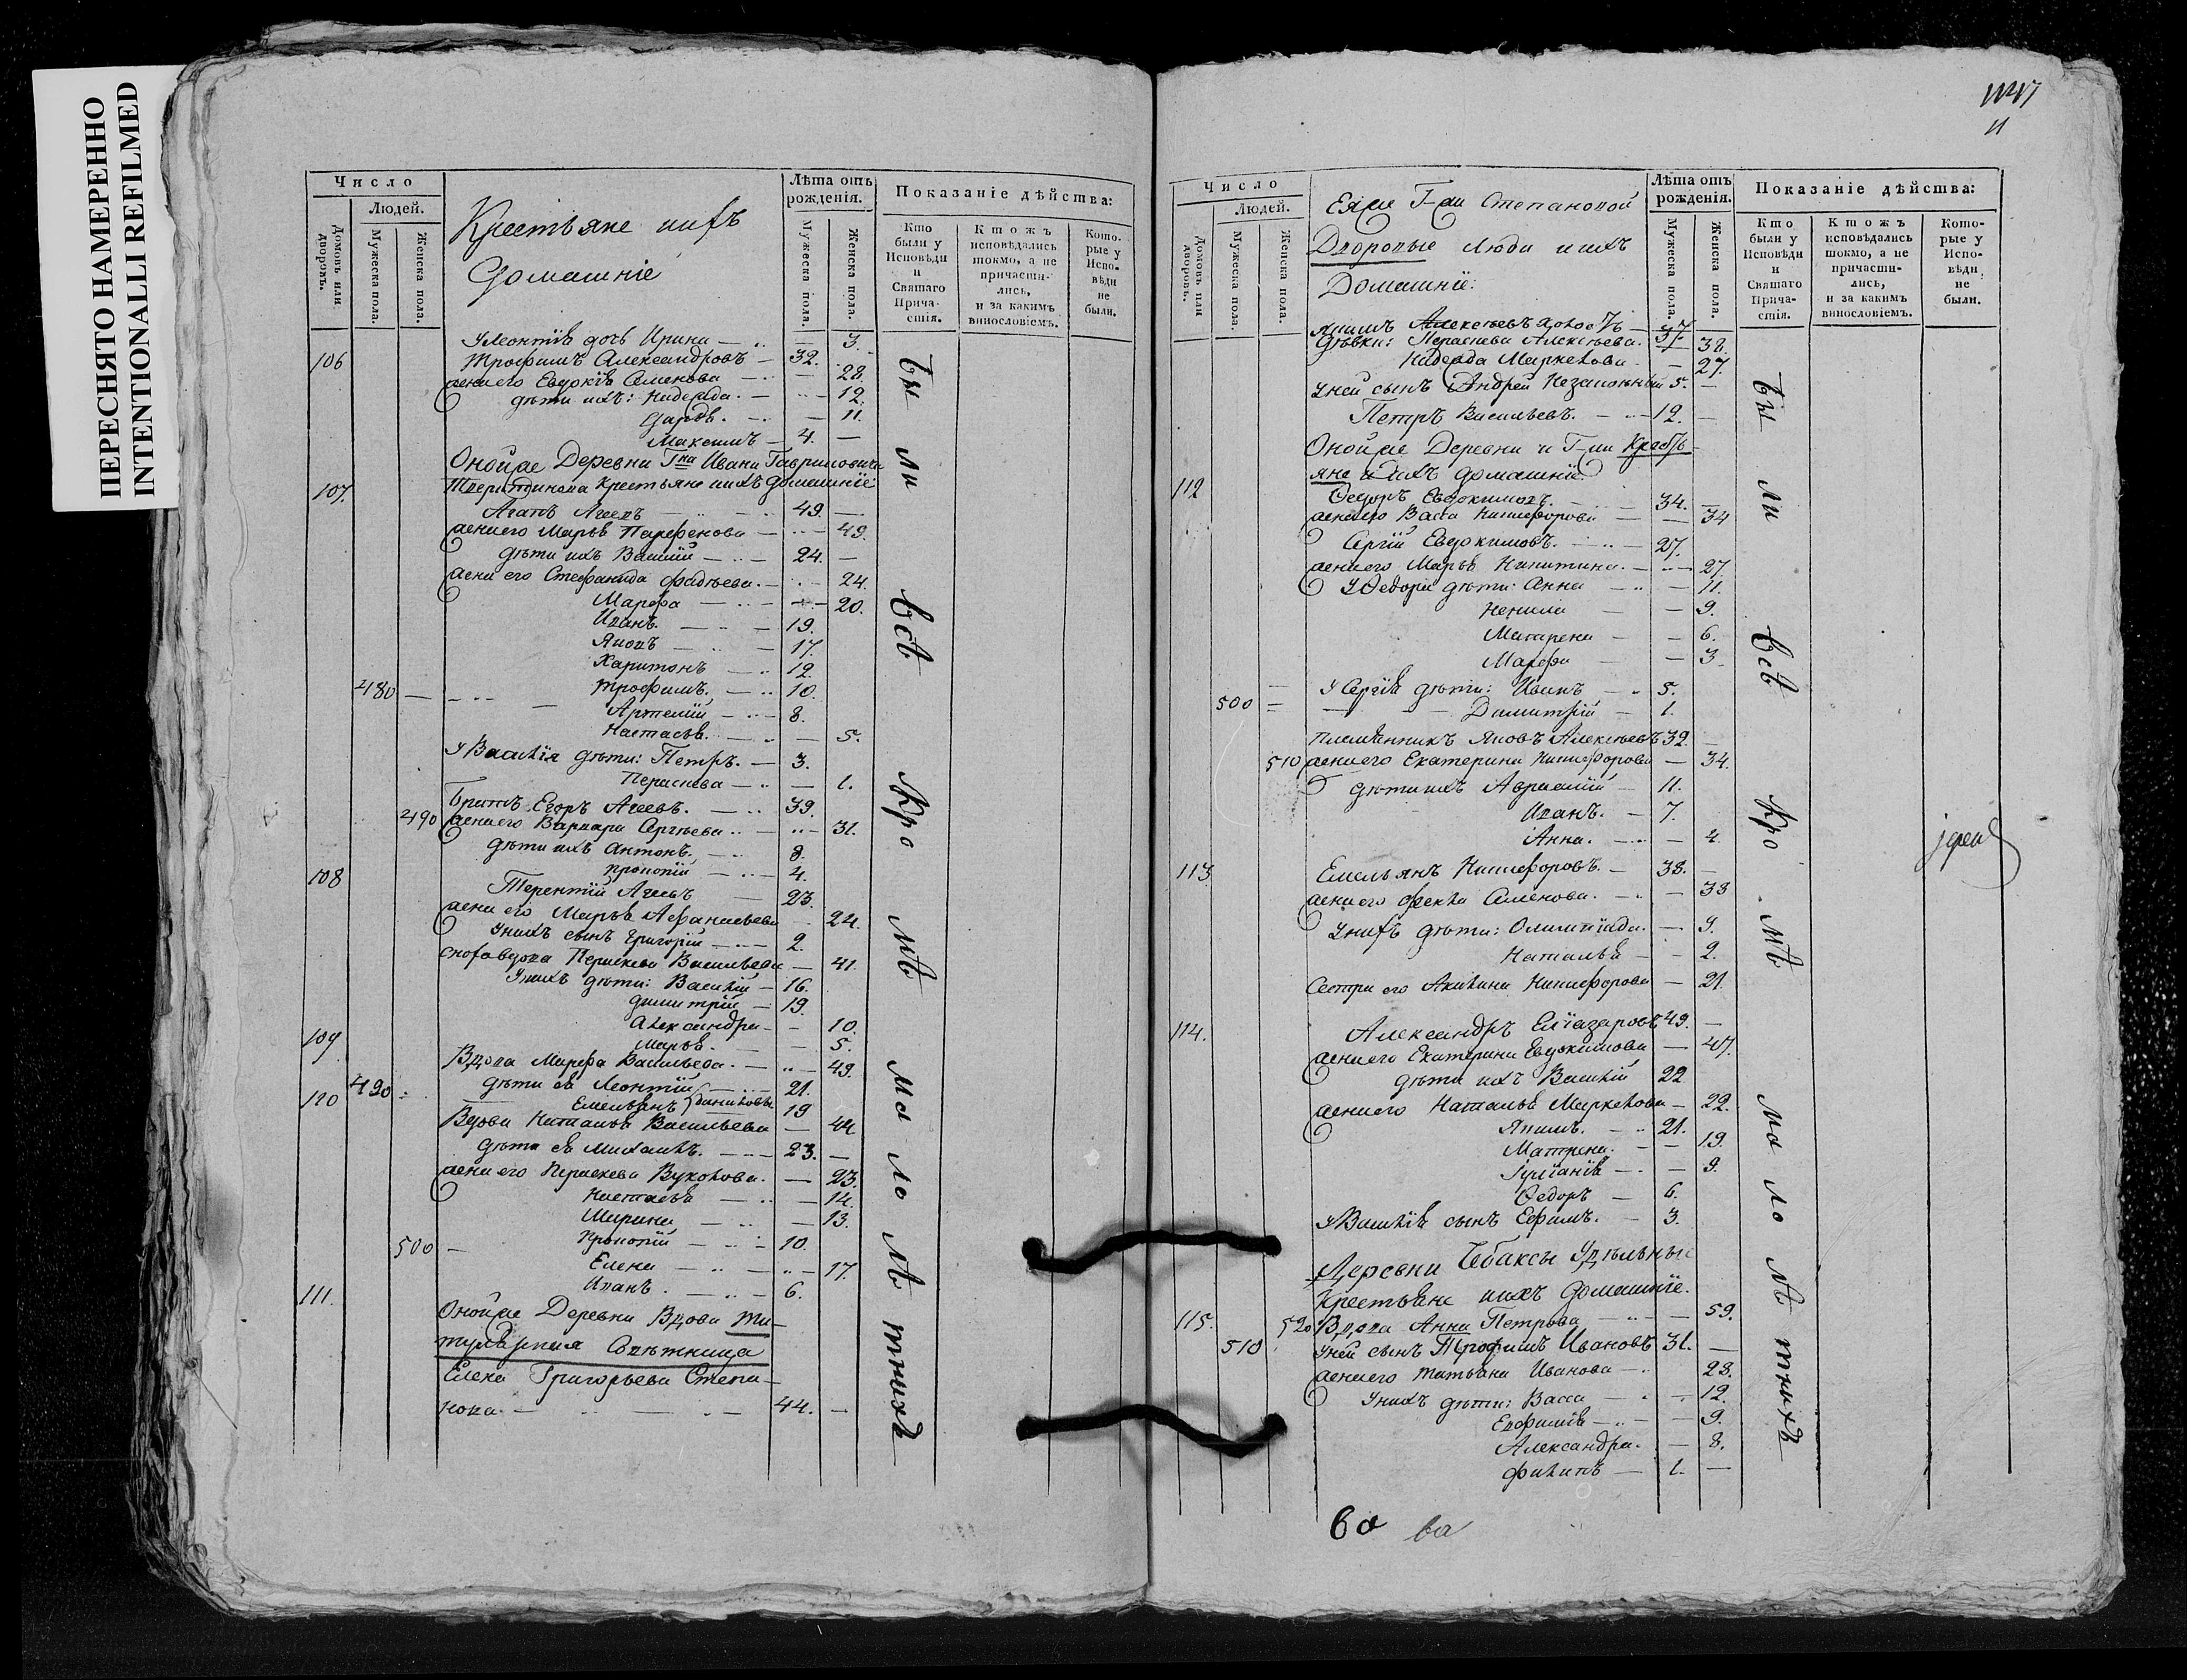 ПЕРЕСНЯТО НАМЕРЕННО
INTENTIONALLI REFILMED
Число
Людей.
Домовъ или дворовъ.
Мужеска пола.
Женска пола.
Крестьяне ихъ
Домашніе
Лѣта отъ рожденія.
Мужеска пола.
Женска пола.
Показаніе дѣйства:
Кто были у Исповѣди и Святаго Причастія.
Ктожъ исповѣдались токмо, а не причастились, и за какимъ винословіемъ.
Которые у Исповѣди не были.
У Леонтія дочь Ирина 3.
106 Трофимъ Александровъ 32.
жена его Евдокія Семенова 28.
дѣти ихъ: Надежда 12.
Дарья 11.
Максимъ 4.
Оной же Деревни Гна Ивана Гавриловича
107. крестьяне и ихъ домашніе:
Агапъ Агеевъ 49.
жена его Марья Парфенова 49.
дѣти ихъ Василій 24.
жена его Стефанида Фадѣева 24.
Марфа 20.
Иванъ 19.
Яковъ 17.
Харитонъ 12.
480 Трофимъ 10.
Артемій 8.
Настасья 5.
У Василія дѣти: Петръ 3.
Параскева 1.
Братъ Егоръ Агеевъ 39.
490 жена его Варвара Сергѣева 31.
дѣти ихъ Антонъ 8.
108 Прокопій 4.
Терентій Агеевъ 23.
жена его Марья Афанасьева 24.
У нихъ сынъ Григорій 2.
сноха вдова Параскева Васильева 41.
У нихъ дѣти: Василій 16.
Димитрій 19.
Александра 10.
109 Марья 5.
Вдова Марфа Васильева 49.
490 дѣти ея Леонтій 21.
110 Емельянъ 19
Вдова Наталья Васильева 44
дѣти ея Михаилъ 23.
жена его Параскева Вуколова 23.
Настасья 14.
Марина 13.
500 Прокопій 10.
Елена 17.
Иванъ 6.
111. Оной же Деревни Вдова Ти-
тулярная Совѣтница
Елена Григорьева Степа-
нова 44.
бы ли всѣ Кро мѣ ма ло лѣ тнихъ
11
Число
Людей.
Домовъ или дворовъ.
Мужеска пола.
Женска пола.
Ея же Г-жи Степановой
Дворовые люди и ихъ
Домашніе:
Лѣта отъ рожденія.
Мужеска пола.
Женска пола.
Показаніе дѣйства:
Кто были у Исповѣди и Святаго Причастія.
Ктожъ исповѣдались токмо, а не причастились, и за какимъ винословіемъ.
Которые у Исповѣди не были.
Якимъ Алексѣевъ холостъ 37
дѣвки: Параскева Алексѣева 38.
Надежда Маркелова 27.
У ней сынъ Андрей Незаконный 5.
Петръ Васильевъ 12.
Оной же Деревни и Г-жи Кресть-
112 яне и ихъ домашніе
Ѳедоръ Евдокимовъ 34.
жена его Васса Никифорова 34
Сергій Евдокимовъ 27.
жена его Марья Никитина 27
У Ѳедора дѣти: Анна 11.
Ненила 9.
Макарена 6.
Марфа 3
У Сергія дѣти: Иванъ 5.
500 Димитрій 1.
племянникъ Яковъ Алексѣевъ 32.
510 жена его Екатерина Никифорова 34.
дѣти ихъ Авраамій 11.
Иванъ 7.
Анна 4
113. Емельянъ Никифоровъ 38.
жена его Фекла Семенова 38
У нихъ дѣти: Олимпіада 9.
Наталья 2.
Сестра его Акилина Никифорова 21
114. Александръ Еліазаровъ 49.
жена его Екатерина Евдокимова 47.
дѣти ихъ Василій 22
жена его Наталья Маркелова 22.
Якимъ 21.
Матрена 19.
Іуліанія 9.
Ѳедоръ 6.
У Василія сынъ Ефимъ 3.
Деревни Чебаксы Удѣльные
Крестьяне и ихъ домашніе.
115. 520 Вдова Анна Петрова 59.
510 У ней сынъ Трофимъ Ивановъ 31.
жена его Татьяна Иванова 28.
У нихъ дѣти: Васса 12.
Евфимія 9.
Александра 8.
Филипъ 1.
бы ли всѣ Кро мѣ ма ло лѣ тнихъ
іерей